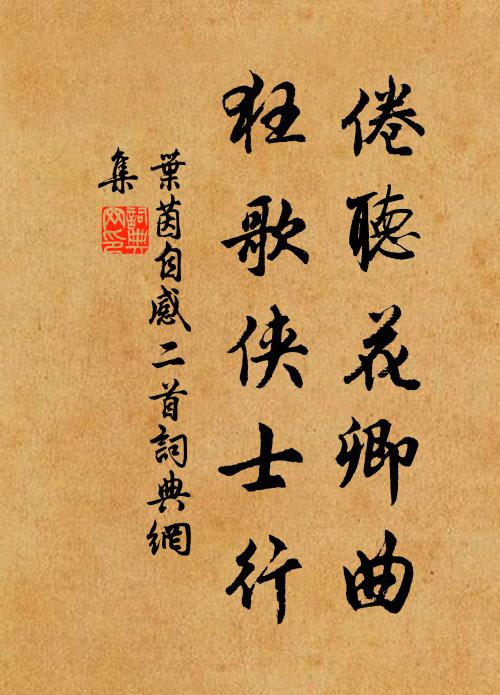 倦聽花卿曲
狂歌俠士行
葉茵自感二首詞典網
集
詞典
网印